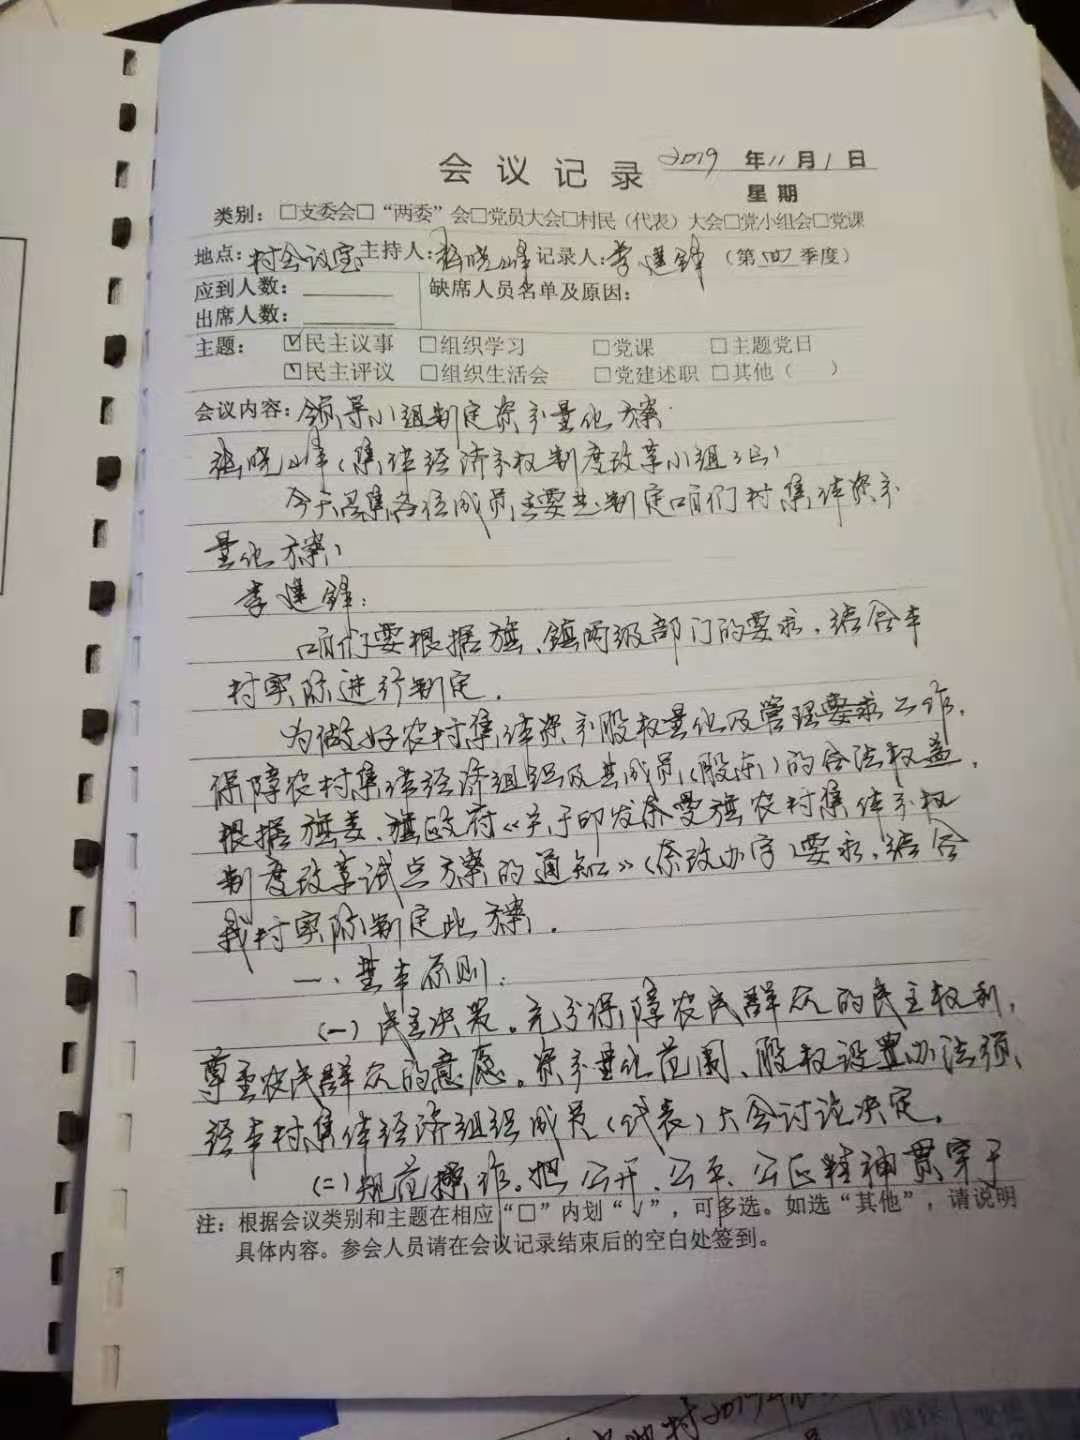 会议记录 2019年11月1日
星期
类别：□支委会□“两委”会□党员大会□村民（代表）大会□党小组会□党课
地点：村会议室 主持人：晓峰 记录人：李建锋 （第四季度）
应到人数：
缺席人员名单及原因：
出席人数：
主题： ☑民主议事 □组织学习 □党课 □主题党日
☑民主评议 □组织生活会 □党建述职 □其他（ ）
会议内容：领导小组制定资产量化方案
晓峰（集体经济产权制度改革小组
今天召集各位成员主要是制定咱们村集体资产
量化方案
李建锋：
咱们要根据旗、镇两级部门的要求，结合本
村实际进行制定。
为做好农村集体资产股权量化及管理工作，
保障农村集体经济组织及其成员（股东）的合法权益，
根据旗委、旗政府《关于印发奈曼旗农村集体产权
制度改革试点方案的通知》（奈政办字）要求，结合
我村实际制定此方案。
一、基本原则：
（一）民主决策。充分保障农民群众的民主权利，
尊重农民群众的意愿。资产量化范围、股权设置办法须
经本村集体经济组织成员（代表）大会讨论决定。
（二）规范操作。把公开、公平、公正精神贯穿于
注：根据会议类别和主题在相应“□”内划“√”，可多选。如选“其他”，请说明
具体内容。参会人员请在会议记录结束后的空白处签到。
村2019年